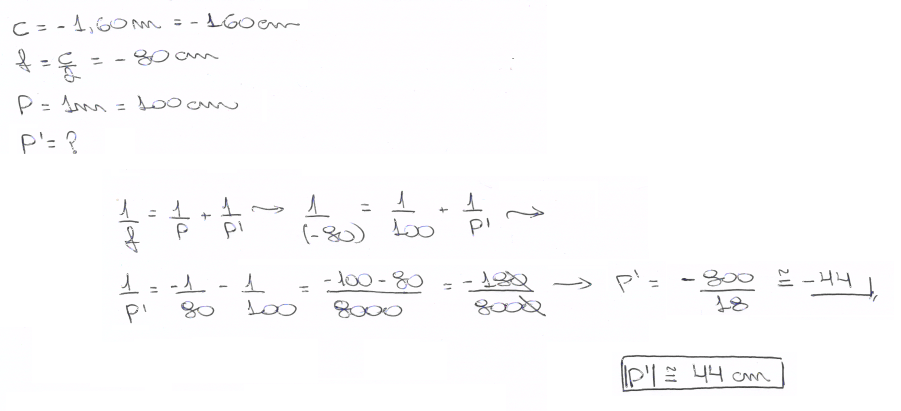 C = -1,60m = -160cm
f = C/2 = -80cm
P = 1m = 100cm
P' = ?
1/f = 1/P + 1/P' → 1/(-80) = 1/100 + 1/P' →
1/P' = -1/80 - 1/100 = (-100-80)/8000 = -180/8000 → P' = -800/18 ≅ -44
|P'| ≅ 44 cm